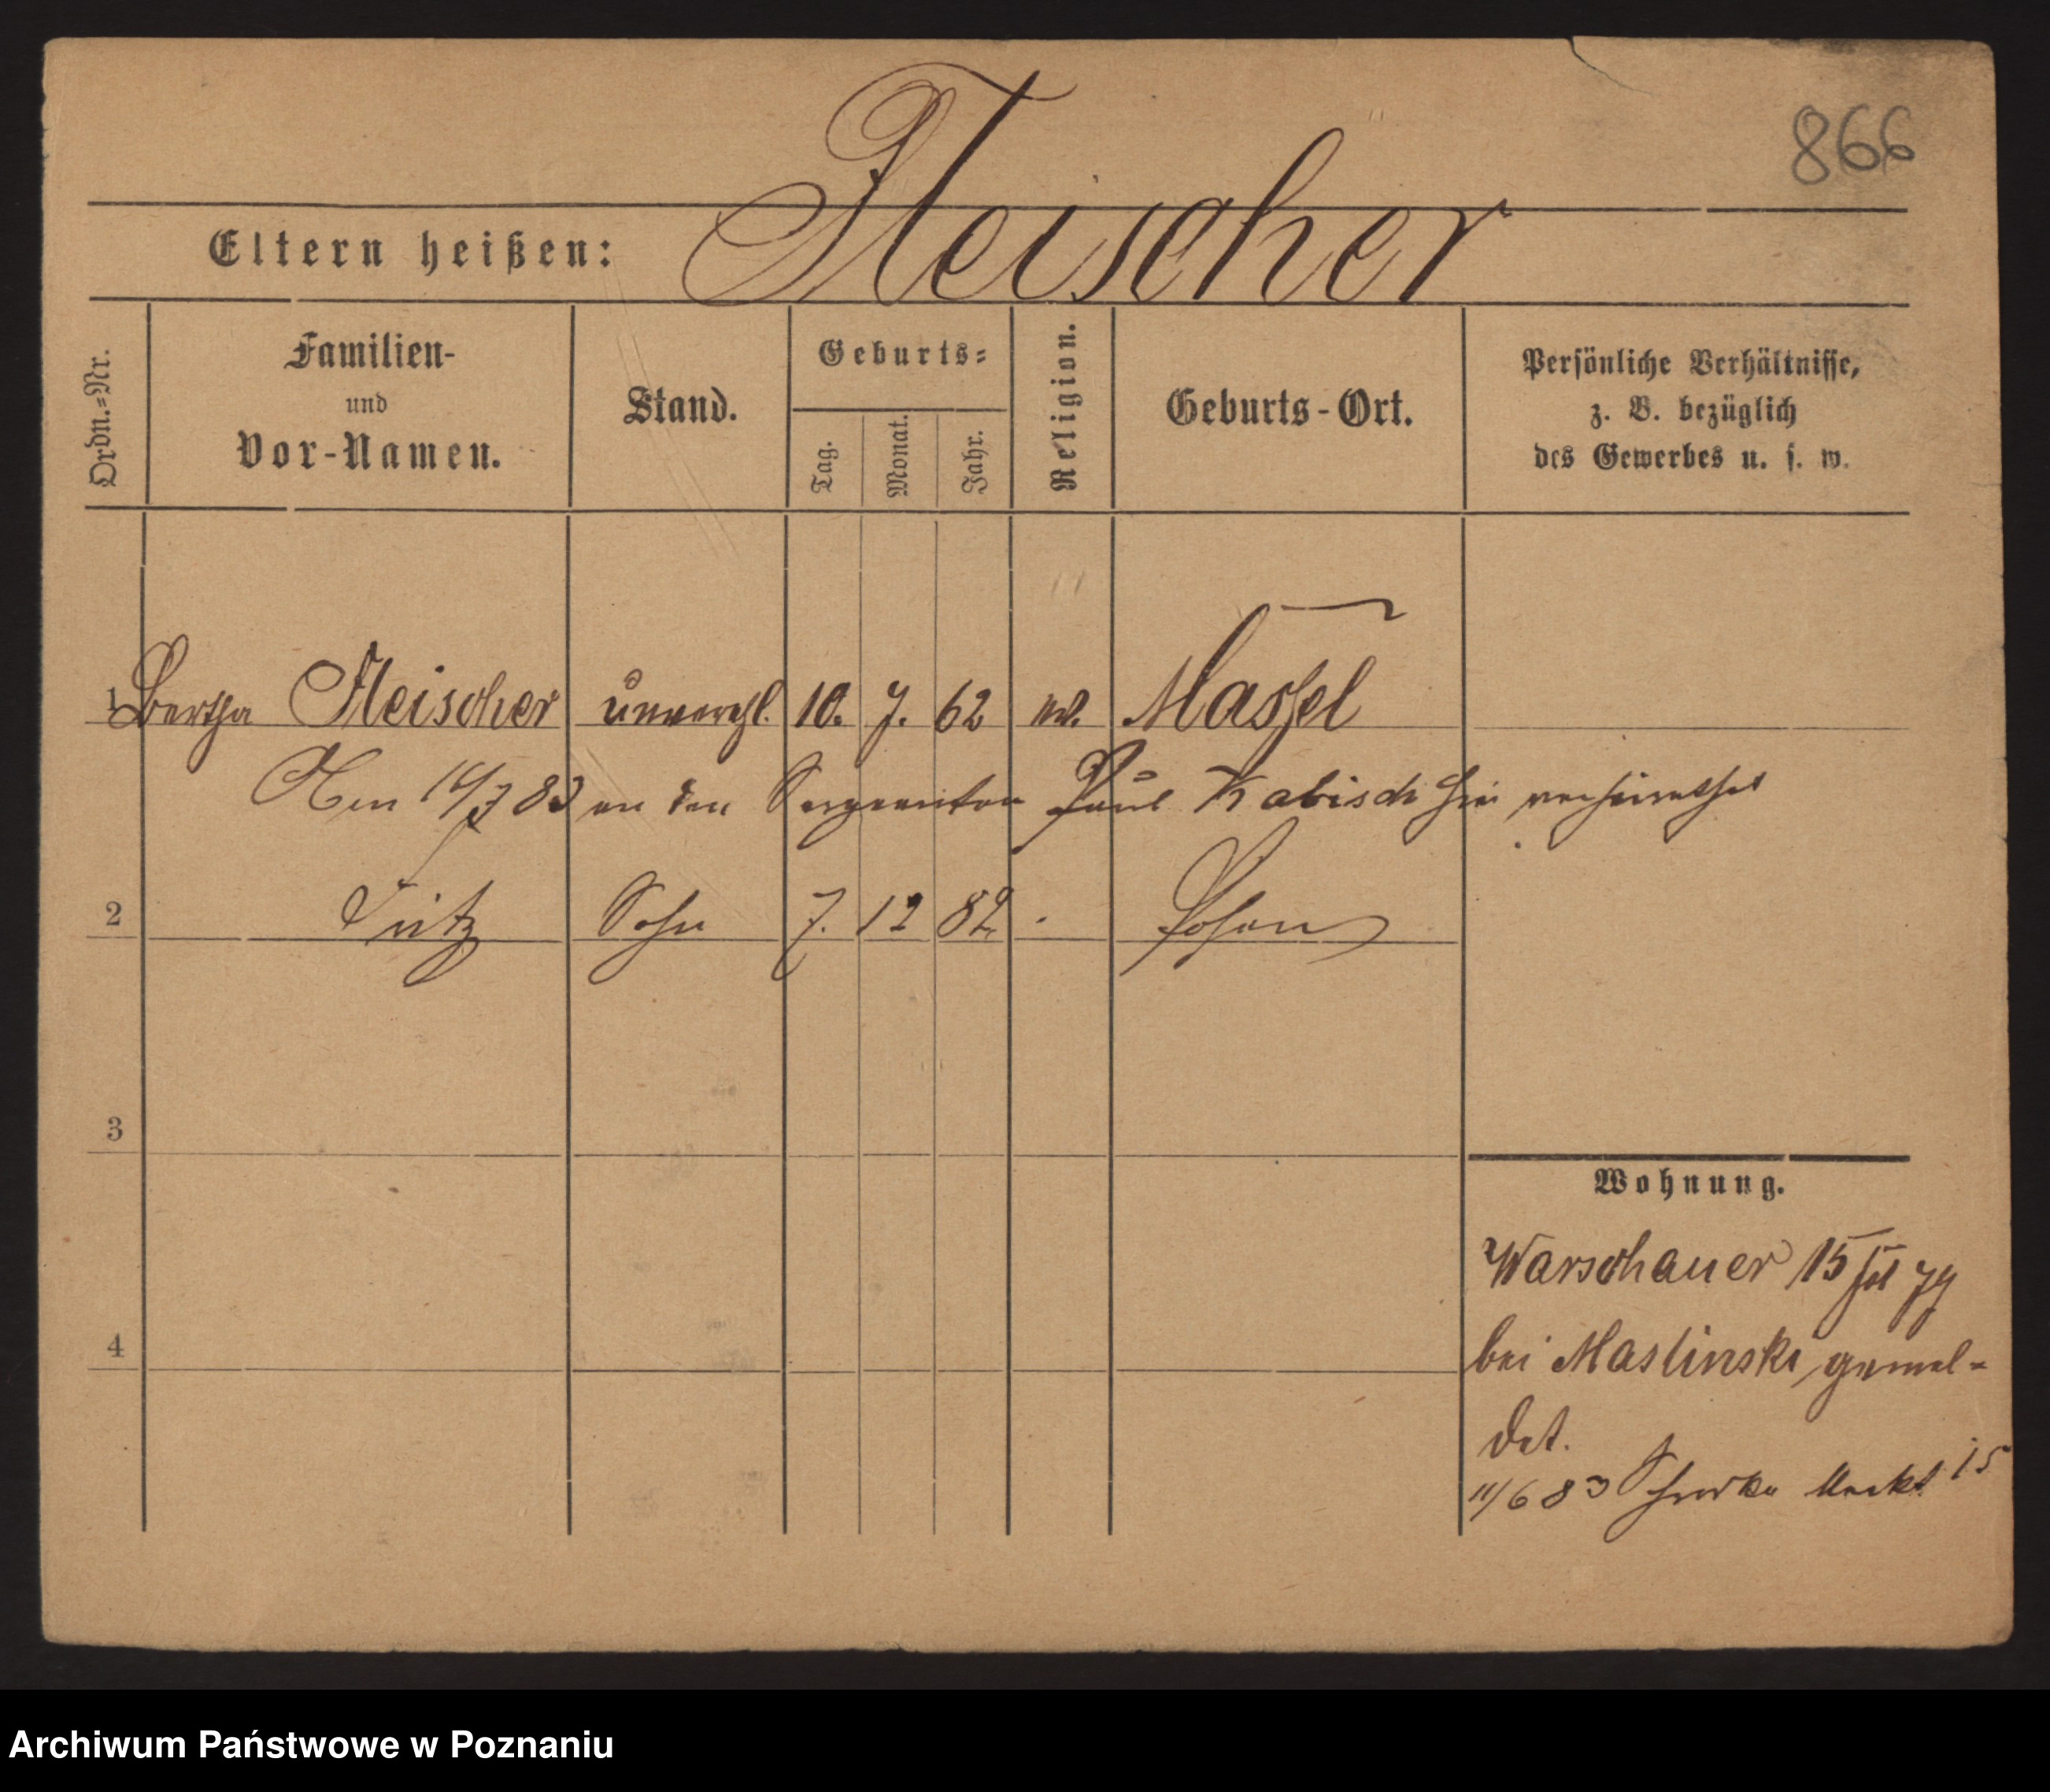 866
Fleischer
Eltern heißen:
Ordn.=Nr.
Familien-
und
Vor-Namen.
Stand.
Geburts=
Tag.
Monat.
Jahr.
Religion.
Geburts-Ort.
Persönliche Verhältnisse,
z. B. bezüglich
des Gewerbes u. s. w.
1 Bertha Fleischer unverehl. 10. 7. 62 ev. Massel
Am 14/7 83 an den Sergeanten Paul Kabisch hier verheirathet
2 Fritz Sohn 7. 12 82 Posen
3
Wohnung.
Warschauer 15 79
4
bei Maslinski gemel-
det.
11/6 83 Markt 15
Archiwum Państwowe w Poznaniu